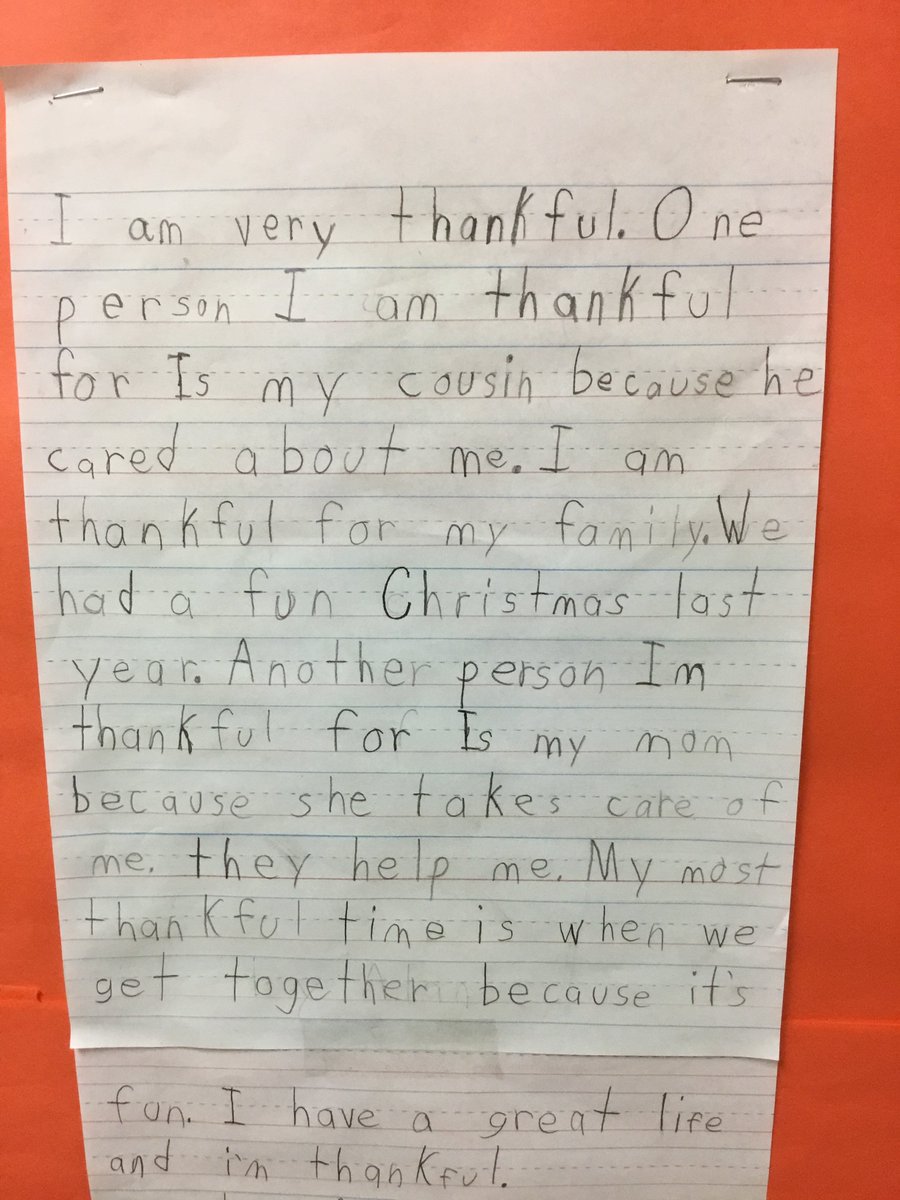 I am very thankful. One
person I am thankful
for Is my cousin because he
cared about me. I am
thankful for my family. We
had a fun Christmas last
year. Another person Im
thankful for Is my mom
because she takes care of
me. they help me. My most
thankful time is when we
get together because it's
fun. I have a great life
and i'm thankful.